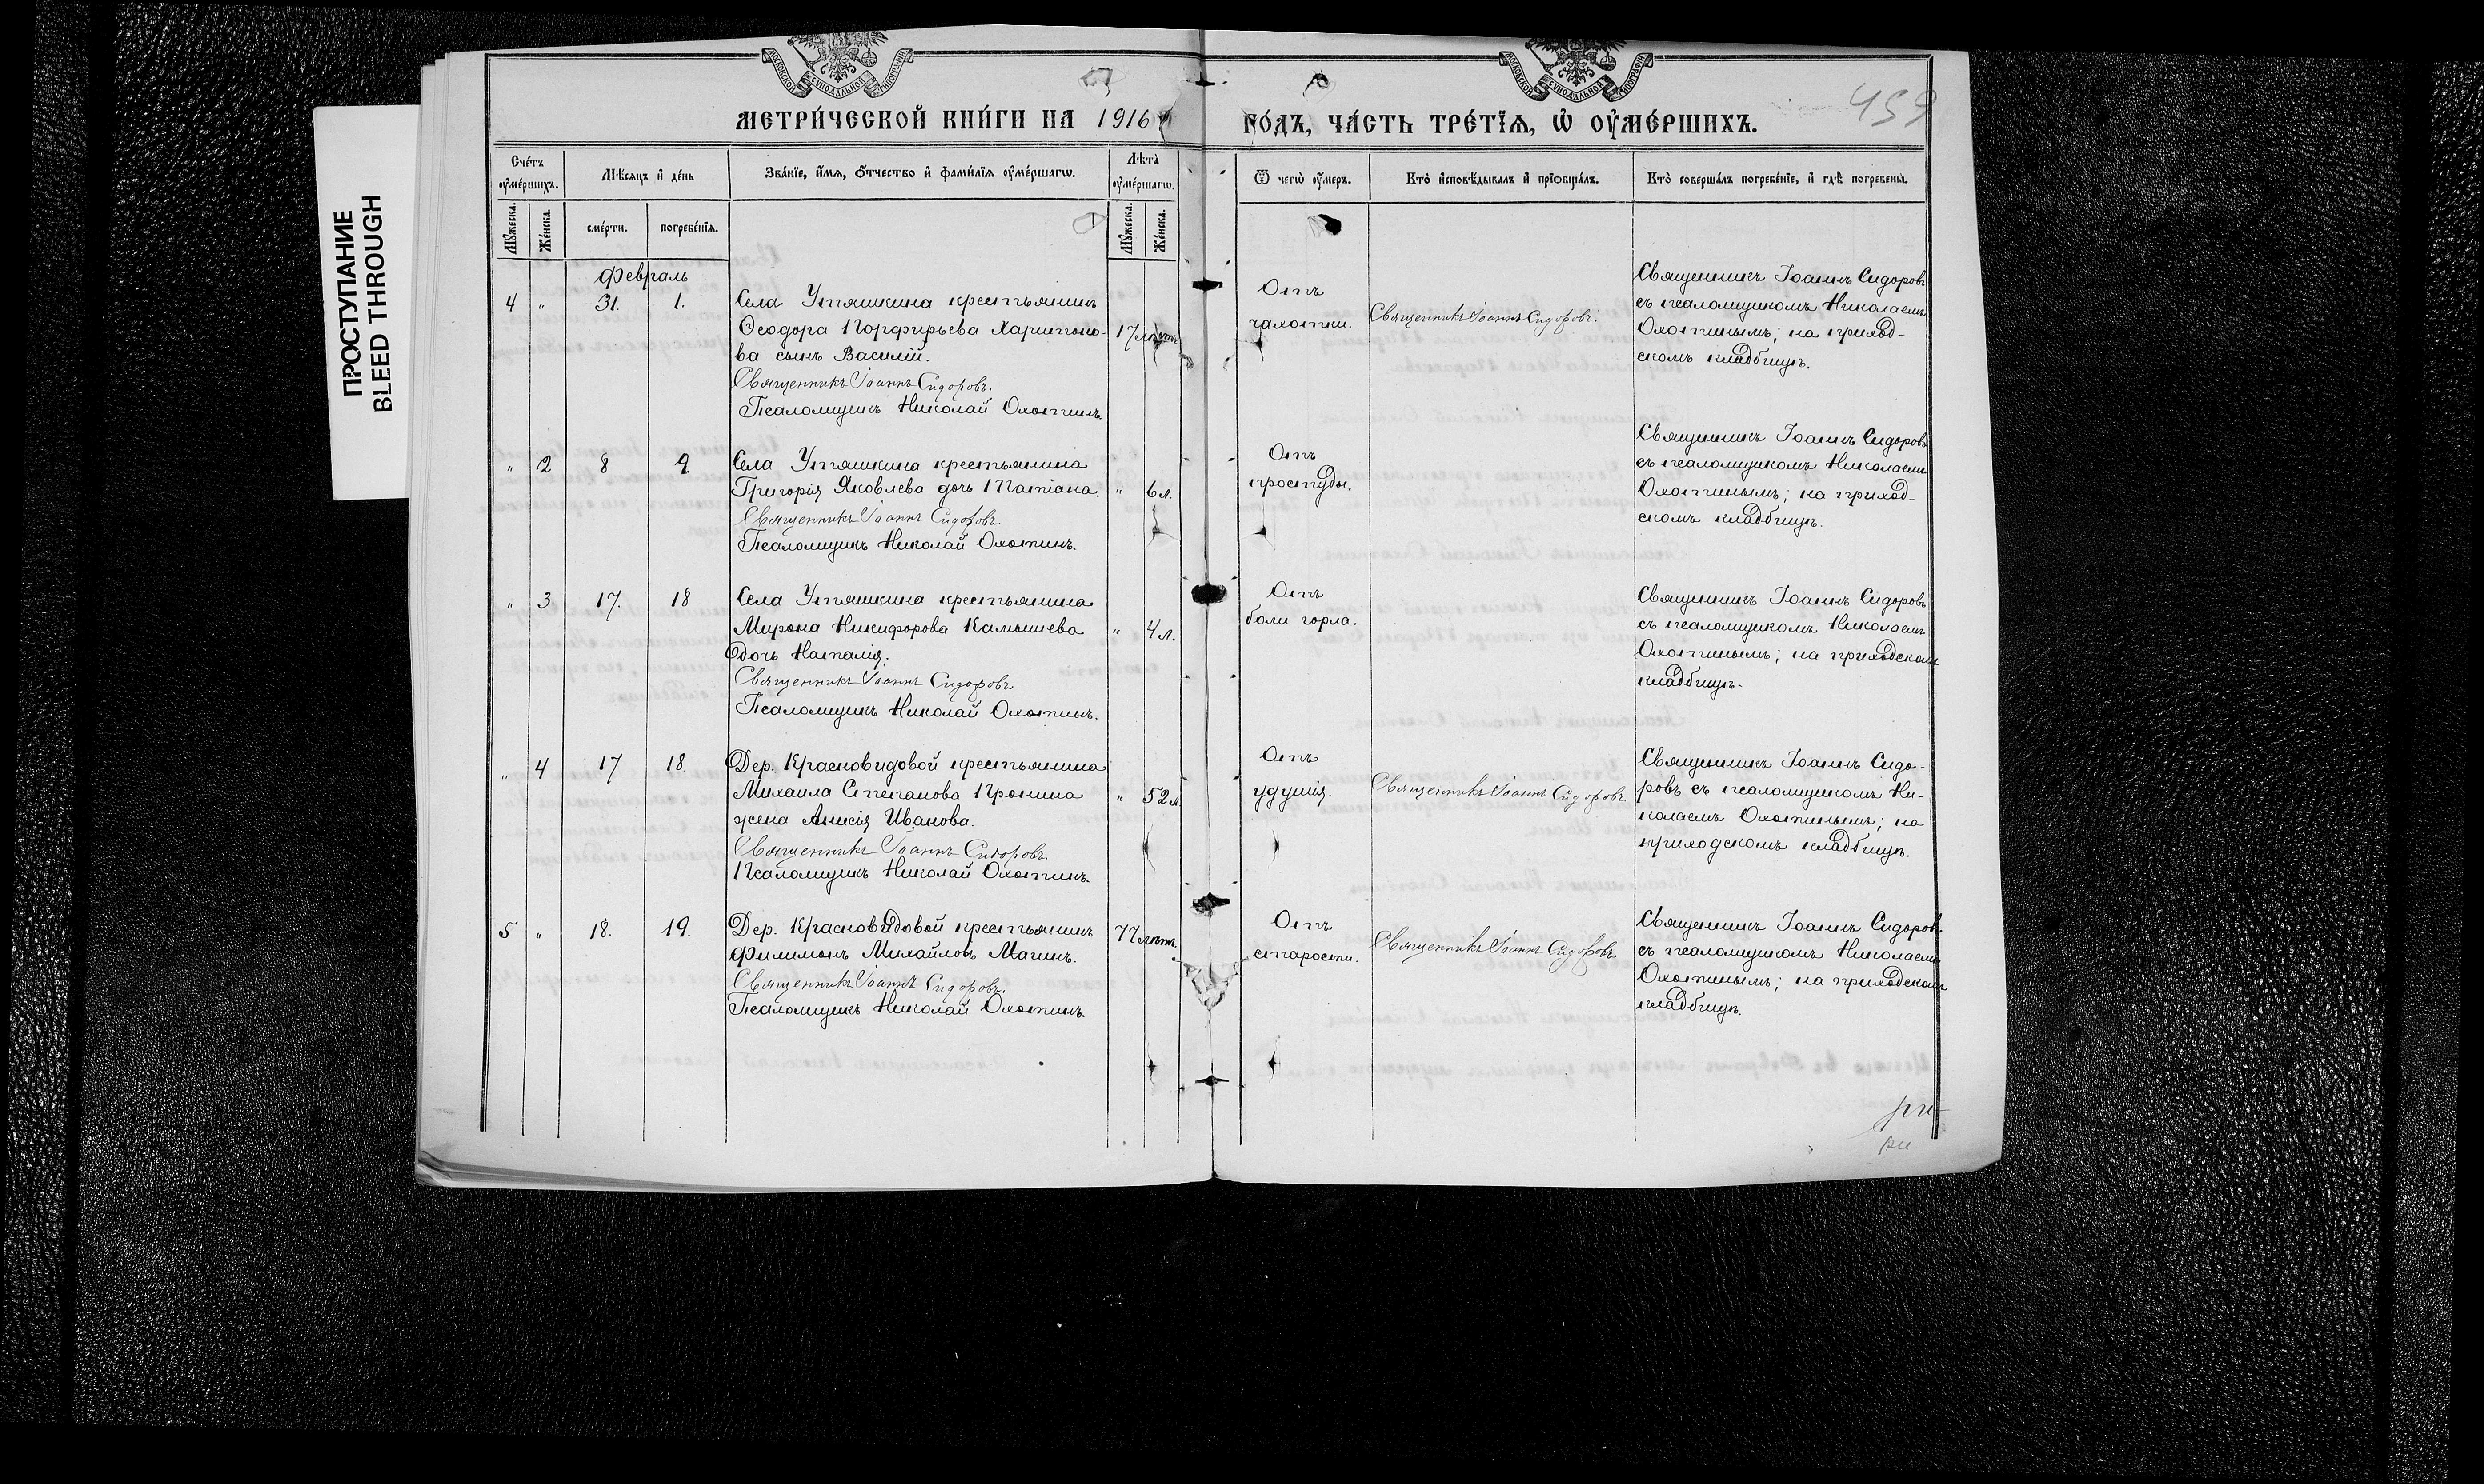 ПРОСТУПАНИЕ
BLEED THROUGH
МОСКОВСКОЙ СѴНОДАЛЬНОЙ ТИПОГРАФІИ
МОСКОВСКОЙ СѴНОДАЛЬНОЙ ТИПОГРАФІИ
МЕТРИ́ЧЕСКОЙ КНИ́ГИ НА 1916
ГО́ДЪ, ЧА́СТЬ ТРЕ́ТЇѦ, Ѡ҆ ОУ҆МЕ́РШИХЪ.
459
Сче́тъ оу҆ме́ршихъ.
Мѣ́сяцъ и҆ де́нь
Зва́нїе, и҆́мя, ѻ҆́тчество и҆ фами́лїя оу҆ме́ршагѡ.
Лѣ́та оу҆ме́ршагѡ.
Ѿ чегѡ̀ оу҆́меръ.
Кто̀ и҆сповѣ́дывалъ и҆ прїѡбща́лъ.
Кто̀ соверша́лъ погребе́нїе, и҆ гдѣ̀ погребены̀.
Му́жеска. Же́нска.
сме́рти. погребе́нїя.
Му́жеска. Же́нска.
Февраль
4 „ 31. 1.
Села Утяшкина крестьянина
Ѳеодора Порфирьева Харитоно-
ва сынъ Василій.
Священникъ Іоаннъ Сидоровъ.
Псаломщикъ Николай Охотинъ.
17 лѣтъ
Отъ
чахотки.
Священникъ Іоаннъ Сидоровъ.
Священникъ Іоаннъ Сидоровъ
съ псаломщикомъ Николаемъ
Охотинымъ; на приход-
скомъ кладбищѣ.
„ 2 8 9.
Села Утяшкина крестьянина
Григорія Яковлева дочь Татіана.
Священникъ Іоаннъ Сидоровъ.
Псаломщикъ Николай Охотинъ.
„ 6 л.
Отъ
простуды.
Священникъ Іоаннъ Сидоровъ
съ псаломщикомъ Николаемъ
Охотинымъ; на приход-
скомъ кладбищѣ.
„ 3 17. 18
Села Утяшкина крестьянина
Мирона Никифорова Камышева
дочь Наталія.
Священникъ Іоаннъ Сидоровъ
Псаломщикъ Николай Охотинъ.
„ 4 л.
Отъ
боли горла.
Священникъ Іоаннъ Сидоровъ
съ псаломщикомъ Николаемъ
Охотинымъ; на приходскомъ
кладбищѣ.
„ 4 17 18
Дер. Красновидовой крестьянина
Михаила Степанова Пронина
жена Анисія Иванова.
Священникъ Іоаннъ Сидоровъ.
Псаломщикъ Николай Охотинъ.
„ 52 л.
Отъ
удушія.
Священникъ Іоаннъ Сидоровъ.
Священникъ Іоаннъ Сидо-
ровъ съ псаломщикомъ Ни-
колаемъ Охотинымъ; на
приходскомъ кладбищѣ.
5 „ 18. 19.
Дер. Красновидовой крестьянинъ
Филимонъ Михайловъ Магинъ.
Священникъ Іоаннъ Сидоровъ.
Псаломщикъ Николай Охотинъ.
77 лѣтъ.
Отъ
старости.
Священникъ Іоаннъ Сидоровъ
Священникъ Іоаннъ Сидоровъ
съ псаломщикомъ Николаемъ
Охотинымъ; на приходскомъ
кладбищѣ.